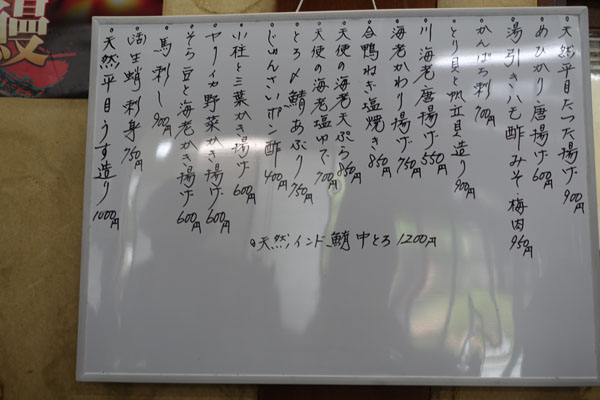 天然平目たつた揚げ 900円
めひかり唐揚げ 600円
湯引きハモ酢みそ・梅肉 950円
かんぱち刺 700円
とり貝と帆立貝造り 900円
川海老唐揚げ 550円
海老かわり揚げ 750円
合鴨ねぎ塩焼き 850円
天使の海老天ぷら 850円
天使の海老塩ゆで 700円
とろ〆鯖あぶり 750円
じゅんさいポン酢 400円
小柱と三葉かき揚げ 600円
ヤリイカ野菜かき揚げ 600円
そら豆と海老かき揚げ 600円
馬刺し 900円
活生蛸刺身 750円
天然平目うす造り 1000円
天然インド鮪中とろ 1200円